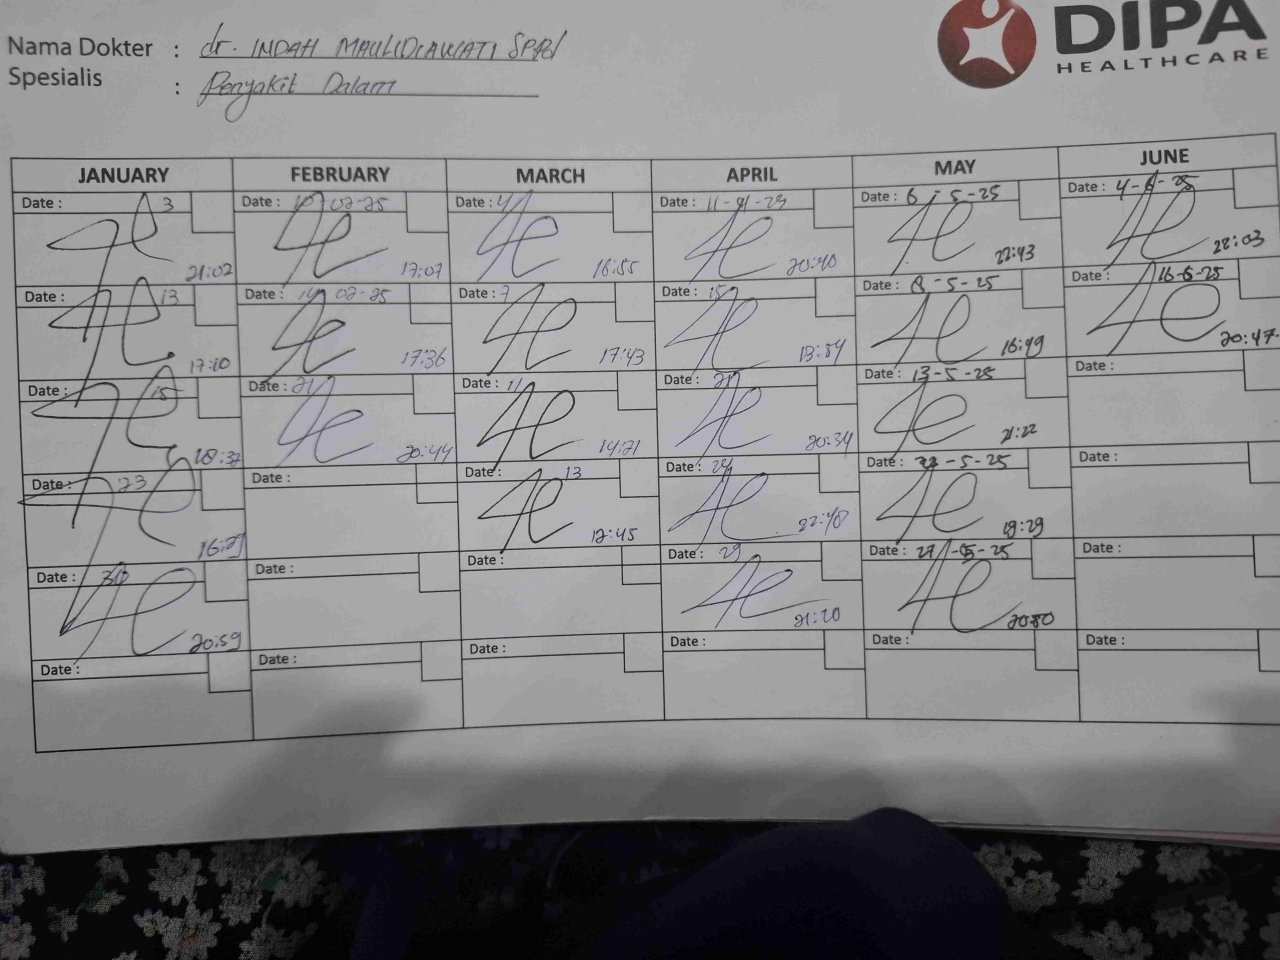 DIPA
HEALTHCARE
Nama Dokter : dr. INDAH MAULIDIAWATI SpPD
Spesialis : Penyakit Dalam
JANUARY FEBRUARY MARCH APRIL MAY JUNE
Date : 3 Date : 02-25 Date : 4 Date : Date : 6 - 5 - 25 Date : 4-6-25
21:02 17:07 16:55 20:40 22:43 22:03
Date : 13 Date : 02-25 Date : 7 Date : 15 Date : 8 - 5 - 25 Date : 16-6-25
17:10 17:36 17:43 16:49 20:47
Date : 15 Date : 21 Date : 11 Date : Date : 13-5-25 Date :
18:32 20:44 14:21 20:34 21:22
Date : 23 Date : Date : 13 Date : 24 Date : - 5 - 25 Date :
16:29 12:45 22:48 19:29
Date : 30 Date : Date : Date : 29 Date : 27 - 05 - 25 Date :
20:59 21:20
Date : Date : Date : Date : Date : Date :